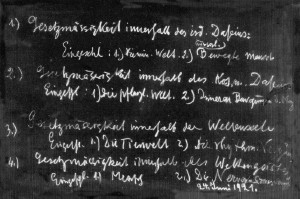 1.) Gesetzmäßigkeit innerhalb des ird. Daseins:
Eingeschl: 1.) Welt. 2.) Bewegte Mensch
2.) Gesetzmäßigkeit innerhalb des Kosm. Daseins
Eingeschl: 1.) Die pflanzl. Welt. 2.) Innere
3.) Gesetzmäßigkeit innerhalb der Weltenseele
Eingeschl. 1.) Die Tierwelt 2.) die rhythm.
4.) Gesetzmäßigkeit innerhalb des Weltengeistes
Eingeschl. 1.) Mensch 2.) Die Nerven
24. Juni 1921.